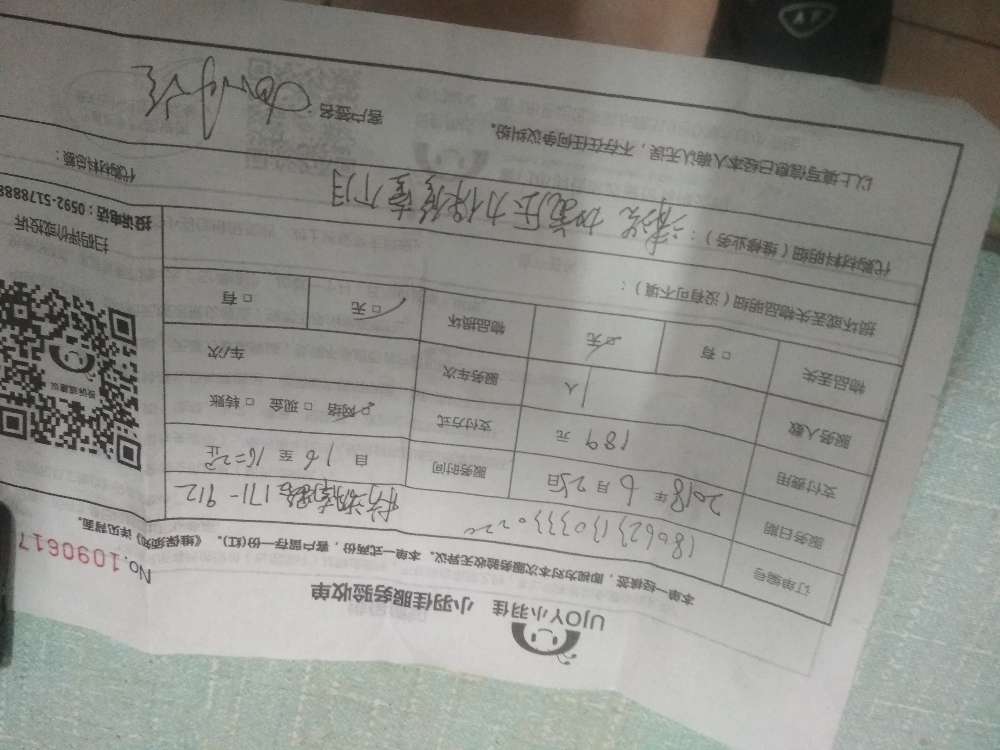 UJOY小羽佳 小羽佳服务验收单
No.1090617
本单一经横签，即视为对本次服务验收无异议。本单一式两份，客户留存一份(红)。《维保须知》详见背面。
订单编号 18062313033302220 171-912
服务日期 2018年6月25日 服务时间 自16至
支付费用 189元 支付方式 ☑网络 □现金 □转账
服务人数 1人 服务车次 车/次
物品丢失 □有 ☑无 物品损坏 ☑无 □有
损坏或丢失物品明细（没有可不填）：
代购材料明细（维修业务）：清洗 加氟压力保修壹个月
代购材料总额：
以上填写信息已经本人确认无误，不存在任何争议纠纷。
客户签名：
投诉或建议
扫码评价或投诉
投诉电话：0592-5178888